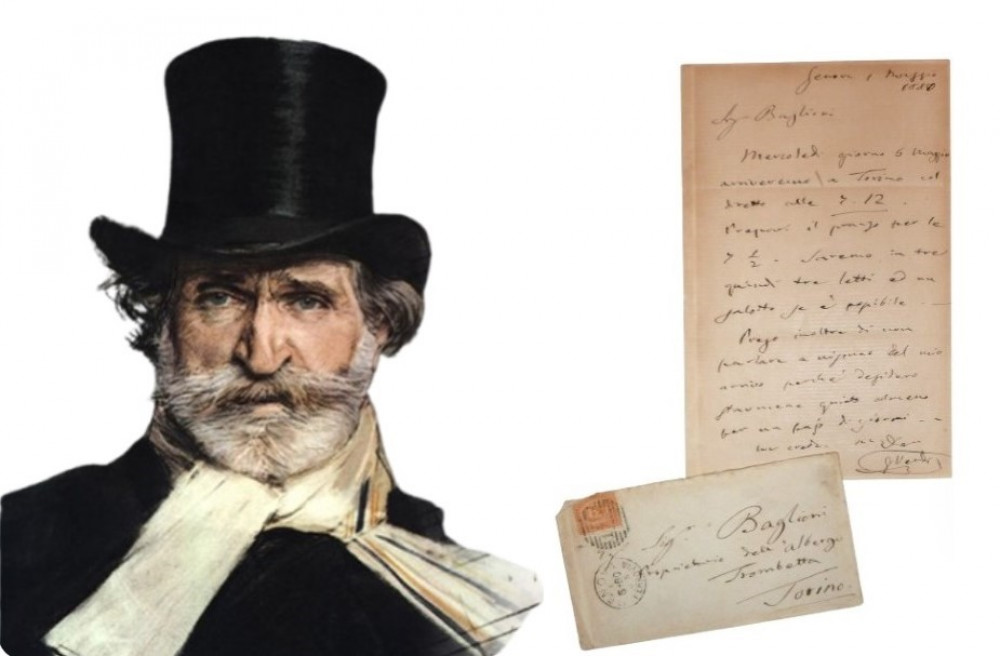 Genova 1 Maggio
1880
Sigr Baglioni
Mercoledì giorno Maggio
arriveremo a Torino col
diretto alle 7. 12.
il pranzo per le
7 1/2. Saremo in tre
quindi tre letti ed un
salotto se è possibile —
Prego inoltre di non
parlare a nissuno del mio
arrivo perché desidero
starmene quieto almeno
per un pajo di giorni —
creda
G Verdi
Sigr Baglioni
Proprietario dell'Albergo
Trombetta
Torino.